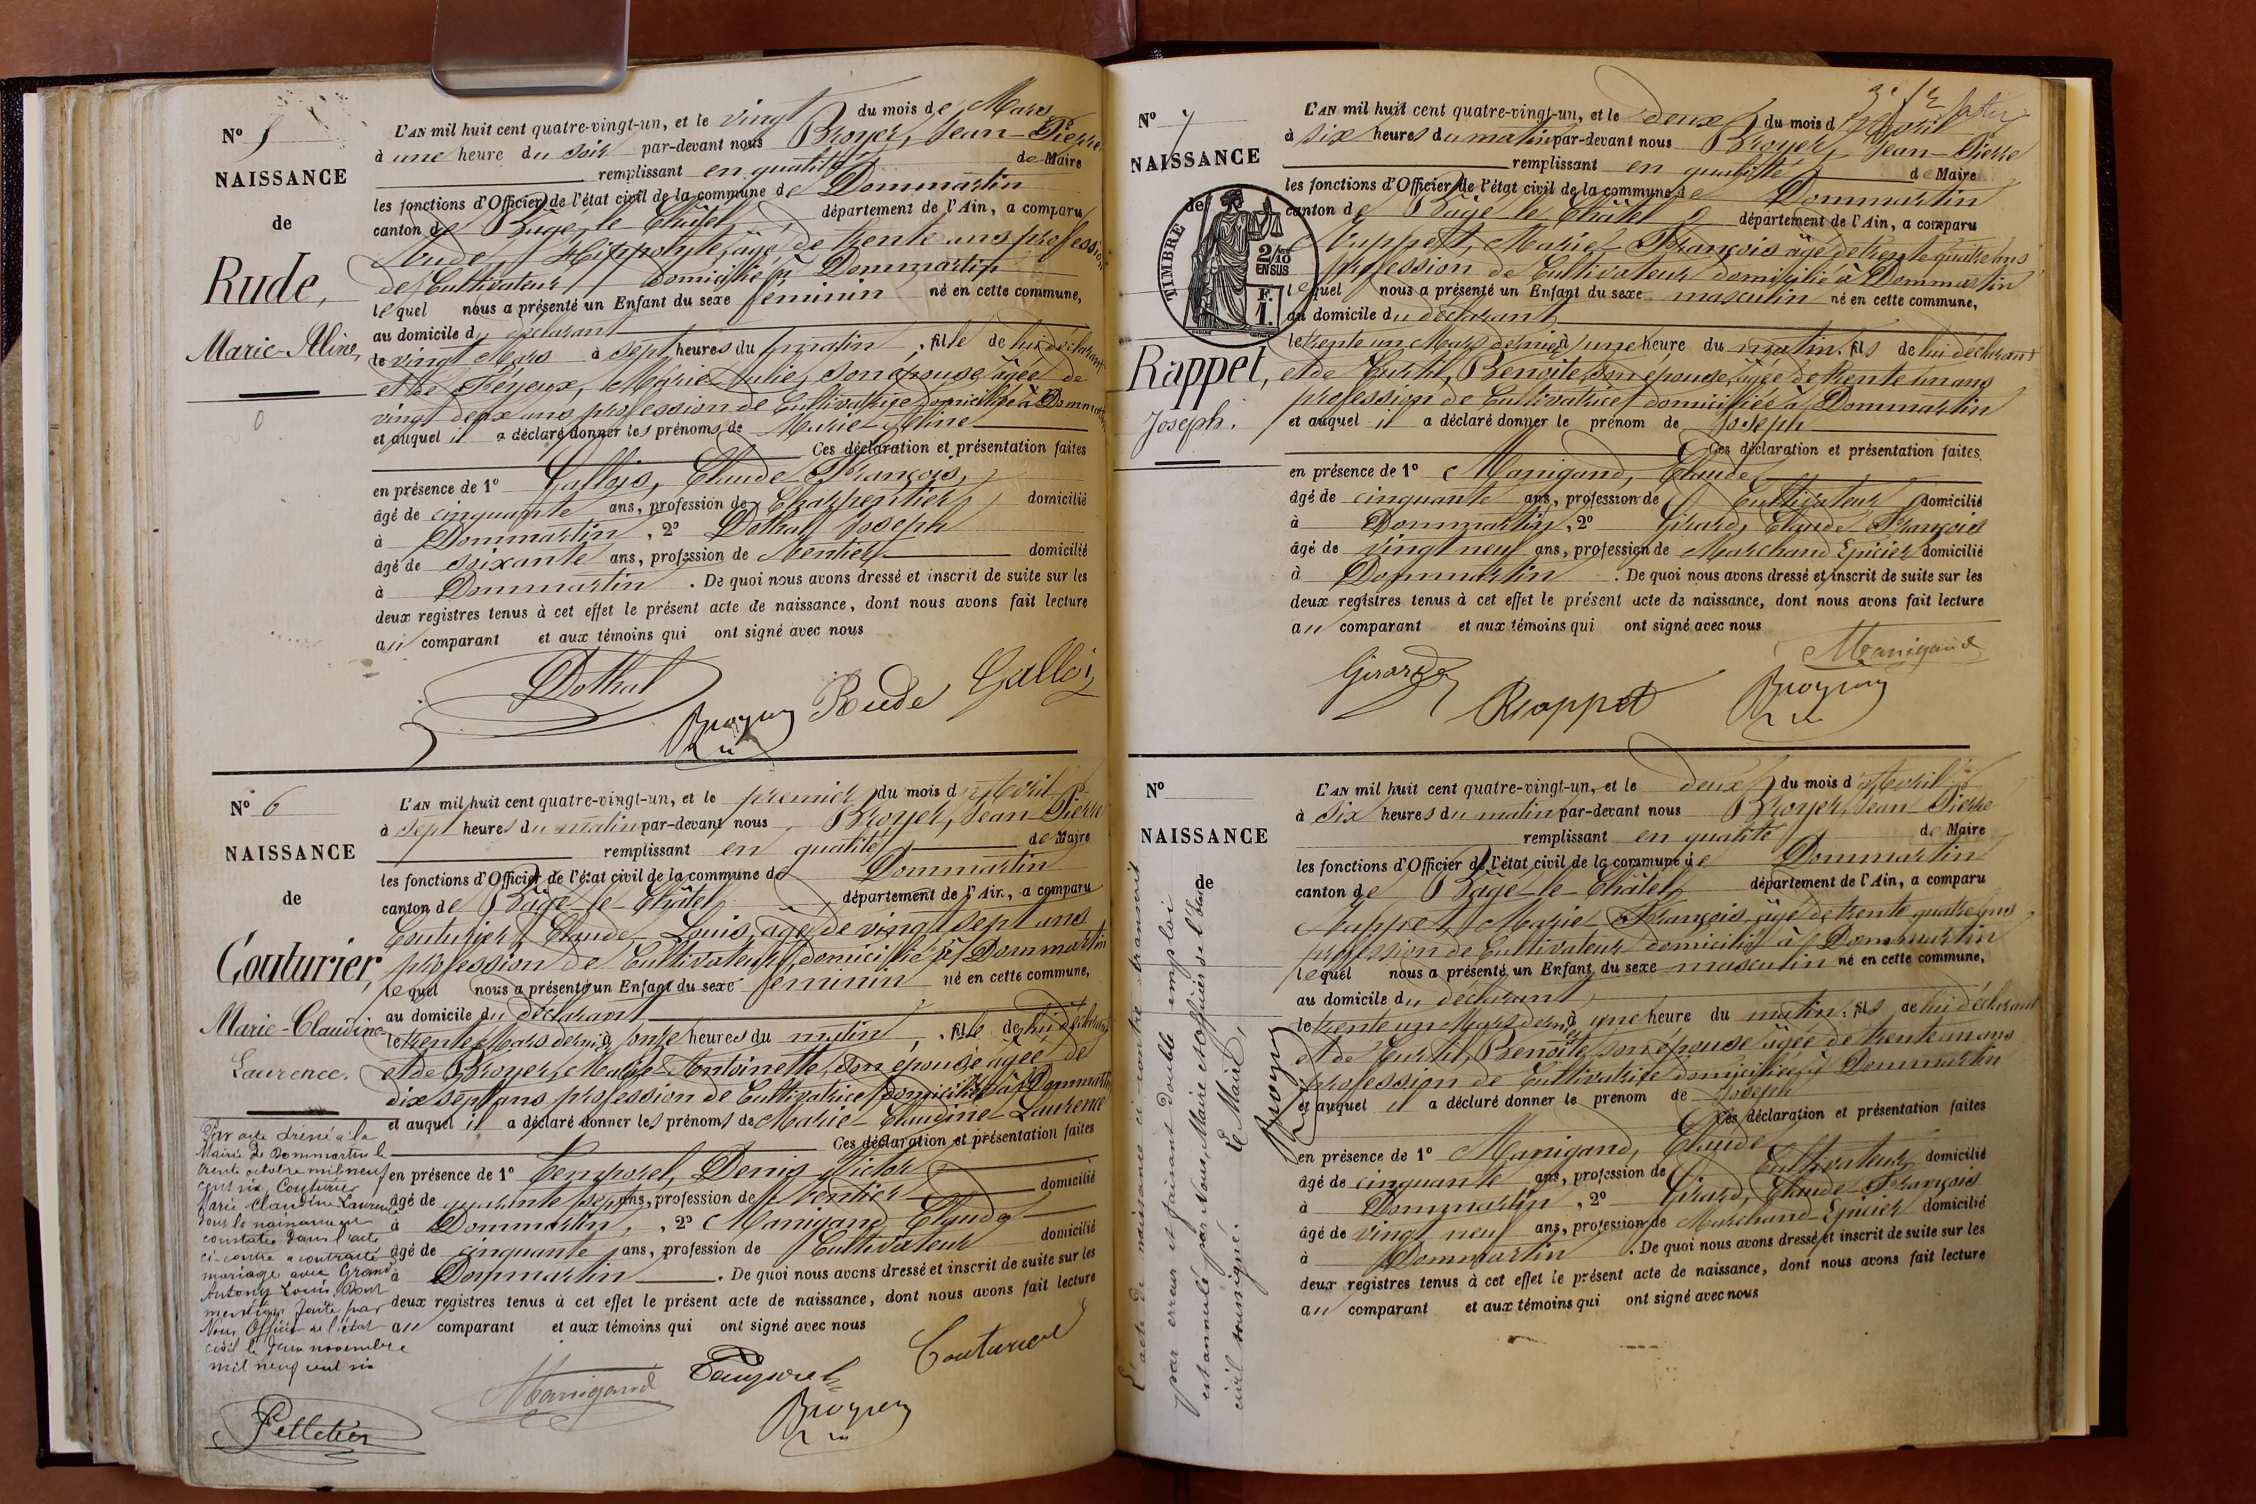 Nº 5
NAISSANCE
de
Rude,
Marie-Aline,
L'AN mil huit cent quatre-vingt-un, et le vingt du mois de Mars
à une heure du soir par-devant nous Broyer, Jean-Pierre
remplissant en qualité de Maire
les fonctions d'Officier de l'état civil de la commune de Dommartin
canton de Bâgé-le-Châtel, département de l'Ain, a comparu
Rude, Hippolyte, âgé de trente ans profession
de Cultivateur domicilié à Dommartin
lequel nous a présenté un Enfant du sexe féminin né en cette commune,
au domicile du déclarant
le vingt Mars à sept heures du matin, fille de lui déclarant
et de Féyeux, Marie-Julie, son épouse âgée de
vingt deux ans profession de Cultivatrice domiciliée à Dommartin
et auquel il a déclaré donner les prénoms de Marie-Aline
Ces déclaration et présentation faites
en présence de 1º Gallois, Claude-François,
âgé de cinquante ans, profession de Charpentier, domicilié
à Dommartin, 2º Dothal Joseph
âgé de soixante ans, profession de Rentier domicilié
à Dommartin. De quoi nous avons dressé et inscrit de suite sur les
deux registres tenus à cet effet le présent acte de naissance, dont nous avons fait lecture
au comparant et aux témoins qui ont signé avec nous
Dothal Broyer Rude Gallois
Nº 6
NAISSANCE
de
Couturier,
Marie-Claudine-
Laurence.
L'AN mil huit cent quatre-vingt-un, et le premier du mois d'Avril
à sept heures du matin par-devant nous Broyer, Jean-Pierre
remplissant en qualité de Maire
les fonctions d'Officier de l'état civil de la commune de Dommartin
canton de Bâgé-le-Châtel, département de l'Ain, a comparu
Couturier, Claude-Louis âgé de vingt sept ans
profession de Cultivateur, domicilié à Dommartin
lequel nous a présenté un Enfant du sexe féminin né en cette commune,
au domicile du déclarant
le trente Mars dernier à onze heures du matin, fille de lui déclarant
et de Broyer, Marie-Antoinette, son épouse âgée de
dix sept ans profession de Cultivatrice domiciliée à Dommartin
et auquel il a déclaré donner les prénoms de Marie-Claudine-Laurence
Ces déclaration et présentation faites
en présence de 1º Temporel, Denis Victor
âgé de quarante sept ans, profession de Rentier domicilié
à Dommartin, 2º Manigand, Claude
âgé de cinquante ans, profession de Cultivateur domicilié
à Dommartin. De quoi nous avons dressé et inscrit de suite sur les
deux registres tenus à cet effet le présent acte de naissance, dont nous avons fait lecture
au comparant et aux témoins qui ont signé avec nous
Manigand Temporel Broyer Couturier
Par acte dressé à la
Mairie de Dommartin le
trente octobre mil neuf
cent six, Couturier
Marie Claudine Laurence
dont la naissance
constatée dans l'acte
ci-contre a contracté
mariage avec Grand
Antony Louis, Dont
mention faite par
Nous Officier de l'état
civil le deux novembre
mil neuf cent six
Pelletier
Nº 7
NAISSANCE
de
TIMBRE
2/10
EN SUS
F.
1.
Rappet,
Joseph.
L'AN mil huit cent quatre-vingt-un, et le deux du mois d'Avril
à six heures du matin par-devant nous Broyer, Jean-Pierre
remplissant en qualité de Maire
les fonctions d'Officier de l'état civil de la commune de Dommartin
canton de Bâgé-le-Châtel département de l'Ain, a comparu
Rappet, Marie-François âgé de trente quatre ans
profession de Cultivateur domicilié à Dommartin
lequel nous a présenté un Enfant du sexe masculin né en cette commune,
au domicile du déclarant
le trente un Mars dernier à une heure du matin, fils de lui déclarant
et de Curtil, Benoîte, son épouse, âgée de trente un ans
profession de Cultivatrice domiciliée à Dommartin
et auquel il a déclaré donner le prénom de Joseph
Ces déclaration et présentation faites
en présence de 1º Manigand, Claude
âgé de cinquante ans, profession de Cultivateur domicilié
à Dommartin, 2º Girard, Claude-François
âgé de vingt neuf ans, profession de Marchand Epicier domicilié
à Dommartin. De quoi nous avons dressé et inscrit de suite sur les
deux registres tenus à cet effet le présent acte de naissance, dont nous avons fait lecture
au comparant et aux témoins qui ont signé avec nous
Girard Rappet Manigand Broyer
Nº
NAISSANCE
de
L'AN mil huit cent quatre-vingt-un, et le deux du mois d'Avril
à six heures du matin par-devant nous Broyer, Jean-Pierre
remplissant en qualité de Maire
les fonctions d'Officier de l'état civil de la commune de Dommartin
canton de Bâgé-le-Châtel, département de l'Ain, a comparu
Rappet, Marie-François, âgé de trente quatre ans
profession de Cultivateur domicilié à Dommartin
lequel nous a présenté un Enfant du sexe masculin né en cette commune,
au domicile du déclarant
le trente un Mars dernier à une heure du matin, fils de lui déclarant
et de Curtil, Benoîte, son épouse âgée de trente un ans
profession de Cultivatrice domiciliée à Dommartin
et auquel il a déclaré donner le prenom de Joseph
Ces déclaration et présentation faites
en présence de 1º Manigand, Claude
âgé de cinquante ans, profession de Cultivateur domicilié
à Dommartin, 2º Girard, Claude-François
âgé de vingt neuf ans, profession de Marchand-Epicier domicilié
à Dommartin. De quoi nous avons dressé et inscrit de suite sur les
deux registres tenus à cet effet le présent acte de naissance, dont nous avons fait lecture
au comparant et aux témoins qui ont signé avec nous
L'acte de naissance ci-contre transcrit
par erreur et faisant double emploi
est annulé par Nous, Maire et officier de l'état
civil soussigné. Le Maire,
Broyer